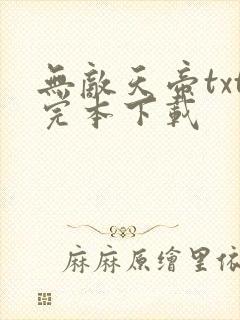 無敵天帝txt
完本下載
麻麻原繪里依